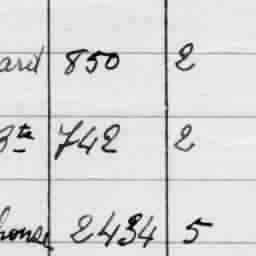 ard 850 2
Bte 742 2
house 2434 5